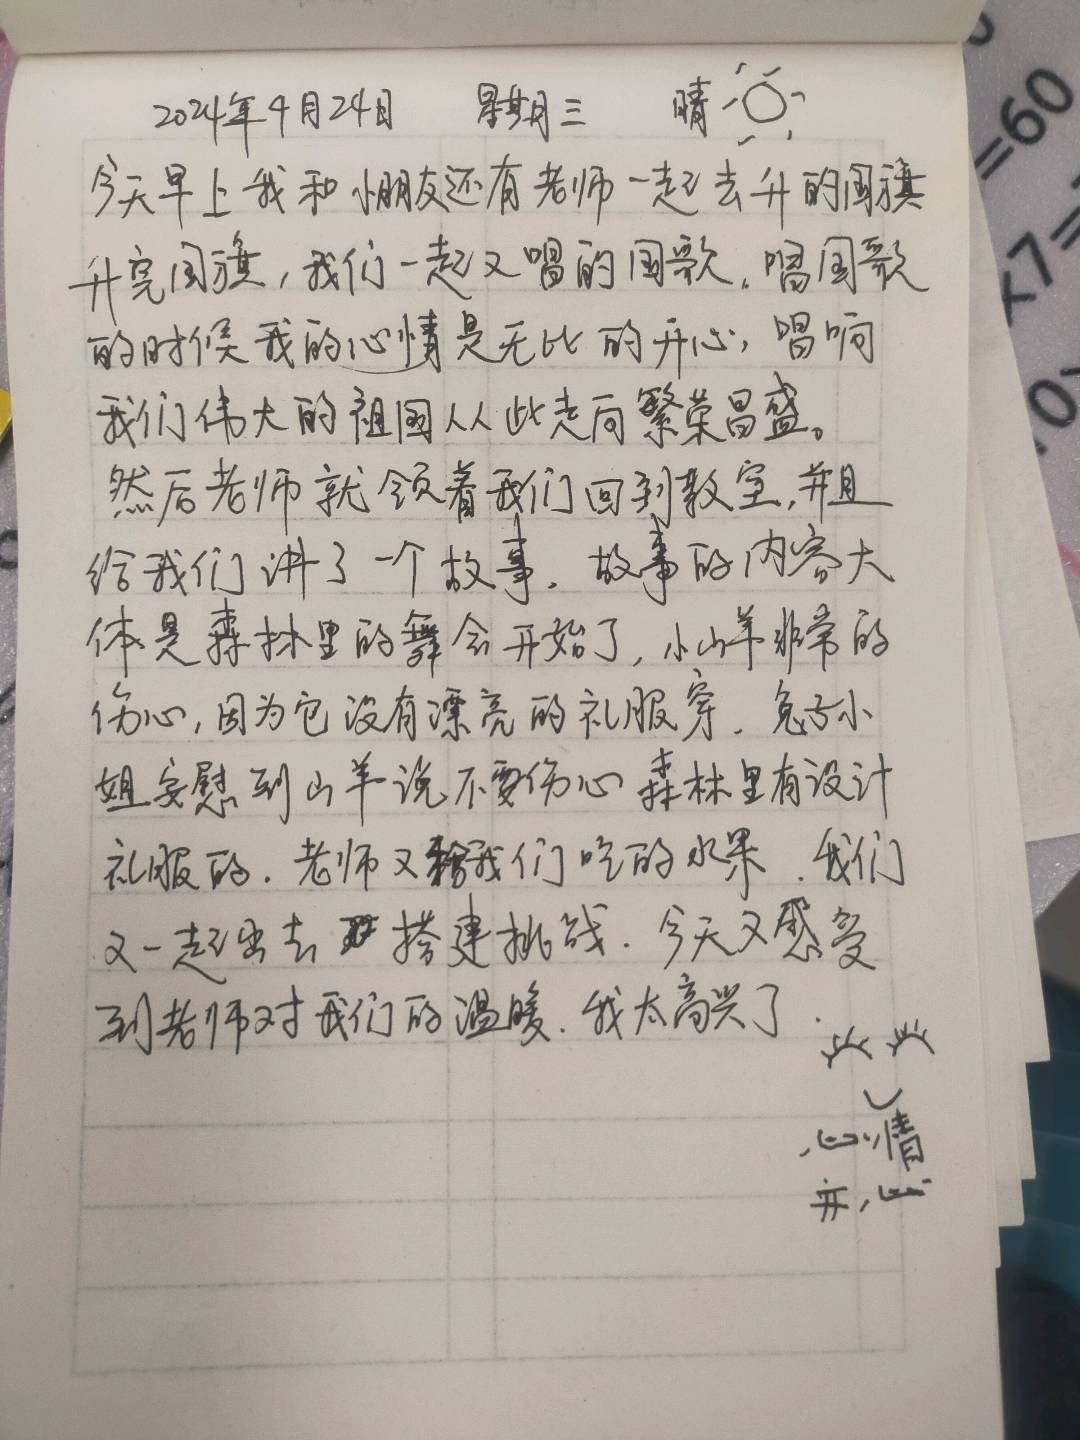 2024年4月24日 星期三 晴
今天早上我和小朋友还有老师一起去升的国旗
升完国旗,我们一起又唱的国歌.唱国歌
的时候我的心情是无比的开心,唱响
我们伟大的祖国从此走向繁荣昌盛。
然后老师就领着我们回到教室,并且
给我们讲了一个故事.故事的内容大
体是森林里的舞会开始了,小山羊非常的
伤心,因为它没有漂亮的礼服穿.兔子小
姐安慰到山羊说不要伤心森林里有设计
礼服的.老师又给我们吃的水果.我们
又一起出去搭建挑战.今天又感受
到老师对我们的温暖.我太高兴了.
心情
开心
=60
×7=